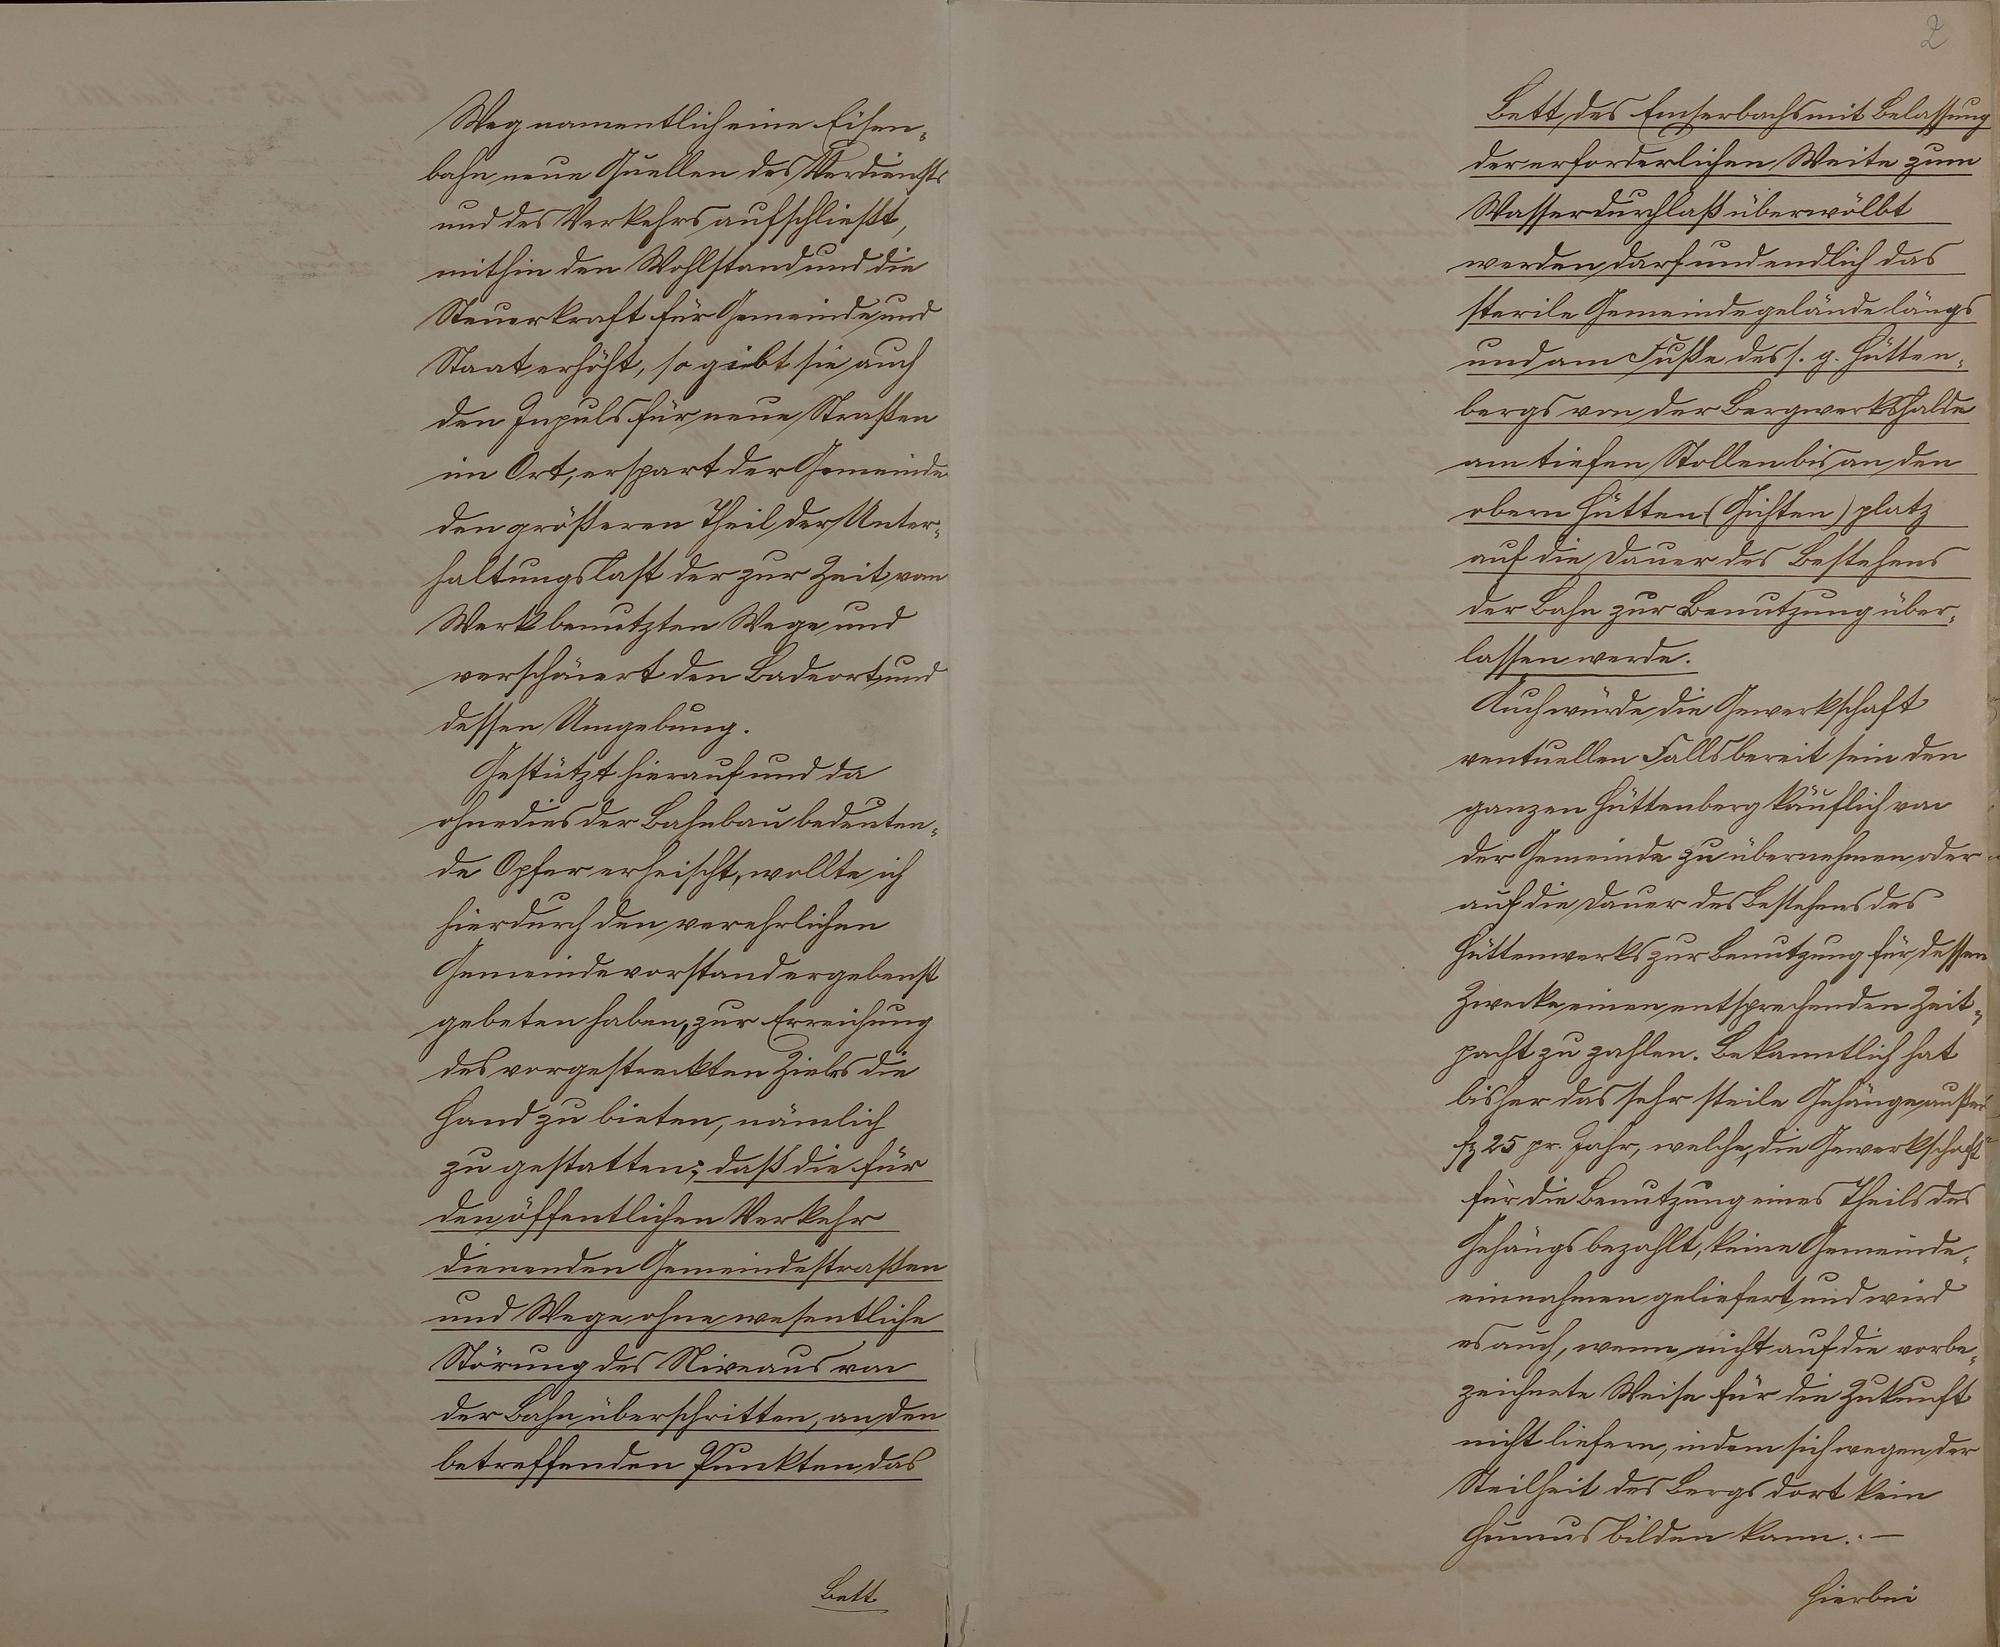 Weg namentlich eine Eisen-
bahn neue Quellen des Verdiensts
und des Verkehrs aufschließt,
mithin den Wohlstand und die
Steuerkraft für Gemeinde und
Staat erhöht, so giebt sie auch
den Inpuls für neue Straßen
im Ort, erspart der Gemeinde
den größeren Theil der Unter-
haltungslast der zur Zeit vom
Werk benutzten Wege und
verschönert den Badeort und
dessen Umgebung.
Gestützt hierauf und da
ohnedies der Bahnbau bedeuten-
de Opfer erheischt, wollte ich
hierdurch den verehrlichen
Gemeindevorstand ergebenst
gebeten haben, zur Erreichung
des vorgesteckten Zieles die
Hand zu bieten, nämlich
zu gestatten; daß die für
den öffentlichen Verkehr
dienenden Gemeindestraßen
und Wege ohne wesentliche
Störung des Niveaus von
der Bahn überschritten, an den
betreffenden Punkten das
Bett
2
Bett des Emserbachs mit Belassung
der erforderlichen Weite zum
Wasserdurchlaß überwölbt
werden darf und endlich das
sterile Gemeindegelände längs
und am Fuße des s. g. Hütten-
bergs von der Bergwerkshalde
am tiefen Stollen bis an den
obern Hütten (Gichten) platz
auf die Dauer des Bestehens
der Bahn zur Benutzung über-
lassen werde.
Auch würde die Gewerkschaft
eventuellen Falls bereit sein den
ganzen Hüttenberg käuflich von
der Gemeinde zu übernehmen oder
auf die Dauer des Bestehens des
Hüttenwerks zur Benutzung für dessen
Zwecke einen entsprechenden Zeit-
pacht zu zahlen. Bekanntlich hat
bisher das sehr steile Gehänge außer
25 pr. Jahr, welche die Gewerkschaft
für die Benutzung eines Theils des
Gehängs bezahlt, keine Gemeinde-
einnahmen geliefert und wird
es auch, wenn nicht auf die vorbe-
zeichnete Weise für die Zukunft
nicht liefern, indem sich wegen der
Steilheit des Bergs dort kein
Humus bilden kann. —
Hierbei